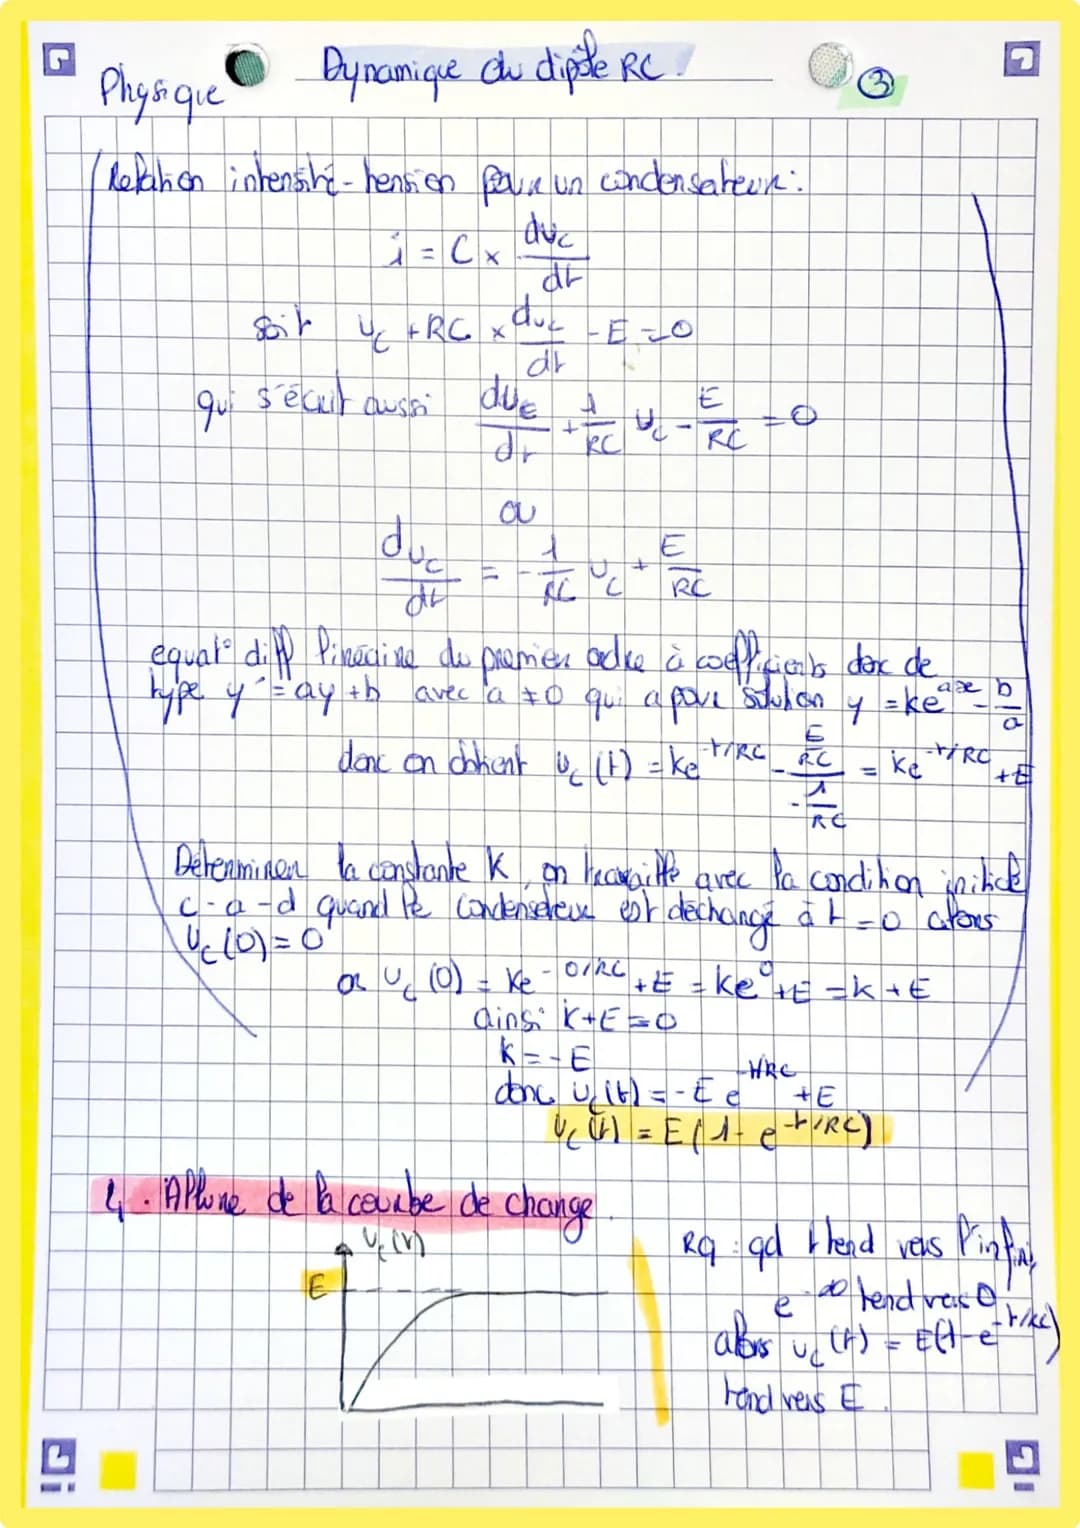 Physique
Dynamique du dipôle RC.
3
Relation intensité-tension pour un condensateur:
i = C x duc/dt
soit uc + RC x duc/dt - E = 0
qui s'écrit aussi duE/dt + 1/RC uc - E/RC = 0
ou
duc/dt = - 1/RC uc + E/RC
equat° diff linéaire du premier ordre à coefficients donc de
type y' = ay + b avec a ≠ 0 qui a pour solution y = ke^ax - b/a
donc on obtient uc(t) = ke^-t/RC - (E/RC)/(-1/RC) = ke^-t/RC + E
Déterminer la constante K, on travaille avec la condition initiale
c-a-d quand le condensateur est déchargé à t = 0 alors
Uc(0) = 0
or Uc(0) = Ke^-0/RC + E = ke^0 + E = k + E
ainsi k + E = 0
k = - E
donc Uc(t) = - E e^-t/RC + E
Uc(t) = E(1 - e^-t/RC)
4. Allure de la courbe de charge.
Uc(t)
E
Rq : qd t tend vers l'infini,
e^-∞ tend vers 0
alors uc(t) = E(1-e^-t/RC)
tend vers E.